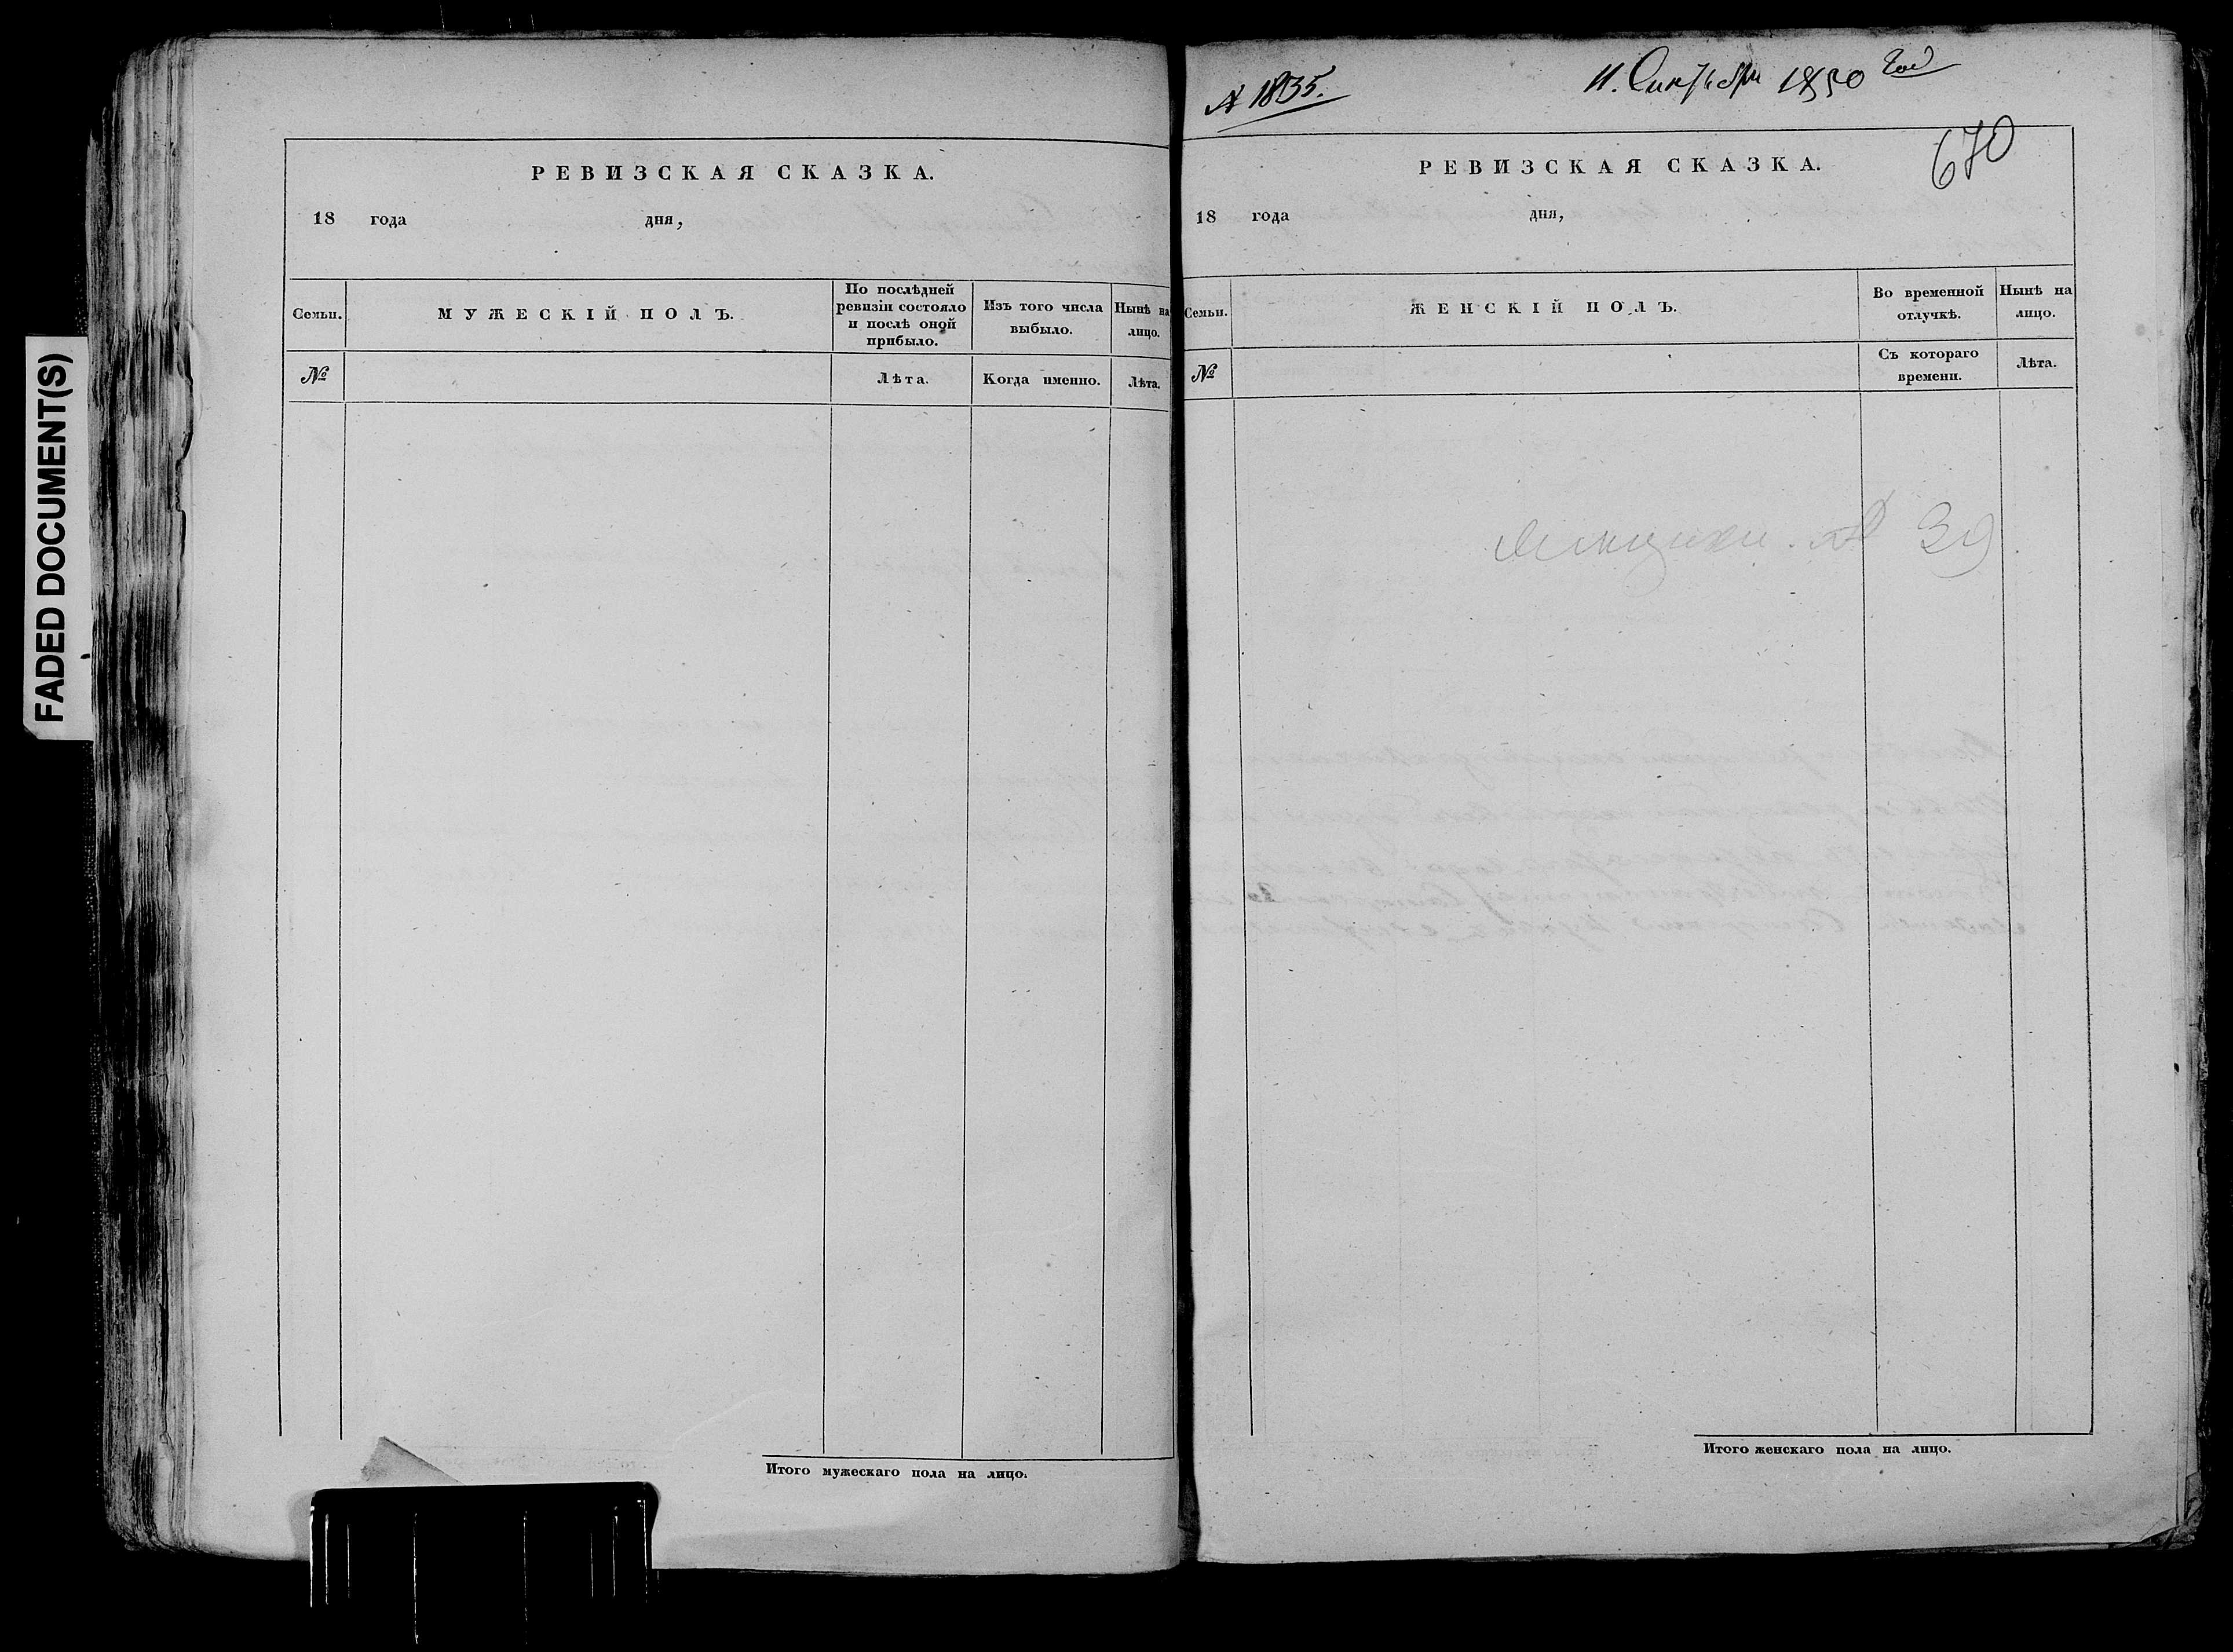 FADED DOCUMENT(S)
РЕВИЗСКАЯ СКАЗКА.
18 года дня,
Семьи.
МУЖЕСКІЙ ПОЛЪ.
По послѣдней
ревизіи состояло
и послѣ оной
прибыло.
Изъ того числа
выбыло.
Нынѣ на
лицо.
№
Лѣта.
Когда именно.
Лѣта.
Итого мужескаго пола на лицо.
№ 1835.
11. Сентября 1850 год
670
РЕВИЗСКАЯ СКАЗКА.
18 года дня,
Семьи.
ЖЕНСКІЙ ПОЛЪ.
Во временной
отлучкѣ.
Нынѣ на
лицо.
№
Съ котораго
времени.
Лѣта.
№ 39
Итого женскаго пола на лицо.